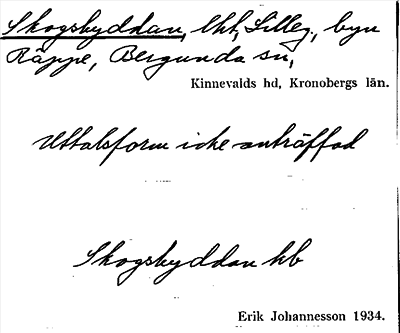 Skogshyddan, lht, Lilleg., byn
Räppe, Bergunda sn,
Kinnevalds hd, Kronobergs län.
Uttalsform icke anträffad
Skogshyddan kb
Erik Johannesson 1934.